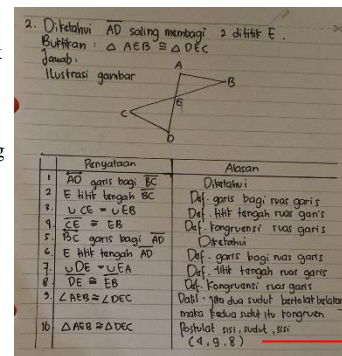 2. Diketahui AD saling membagi 2 dititik E.
Buktikan : △ AEB ≅ △ DEC
Jawab :
Ilustrasi gambar
A
B
E
C
D
Penyataan Alasan
1 AD garis bagi BC Diketahui
2 E titik tengah BC Def. garis bagi ruas garis
3. ∪ CE = ∪ EB Def. titik tengah ruas garis
4. CE ≅ EB Def. Kongruensi ruas garis
5. BC garis bagi AD Diketahui
6. E titik tengah AD Def. garis bagi ruas garis
7. ∪ DE = ∪ EA Def. titik tengah ruas garis
8 DE ≅ EB Def. Kongruensi ruas garis
9. ∠AEB ≅ ∠DEC Dalil - jika dua sudut bertolak belakang
maka kedua sudut itu kongruen
10 △AEB ≅ △DEC Postulat sisi, sudut, sisi
(4, 9, 8)